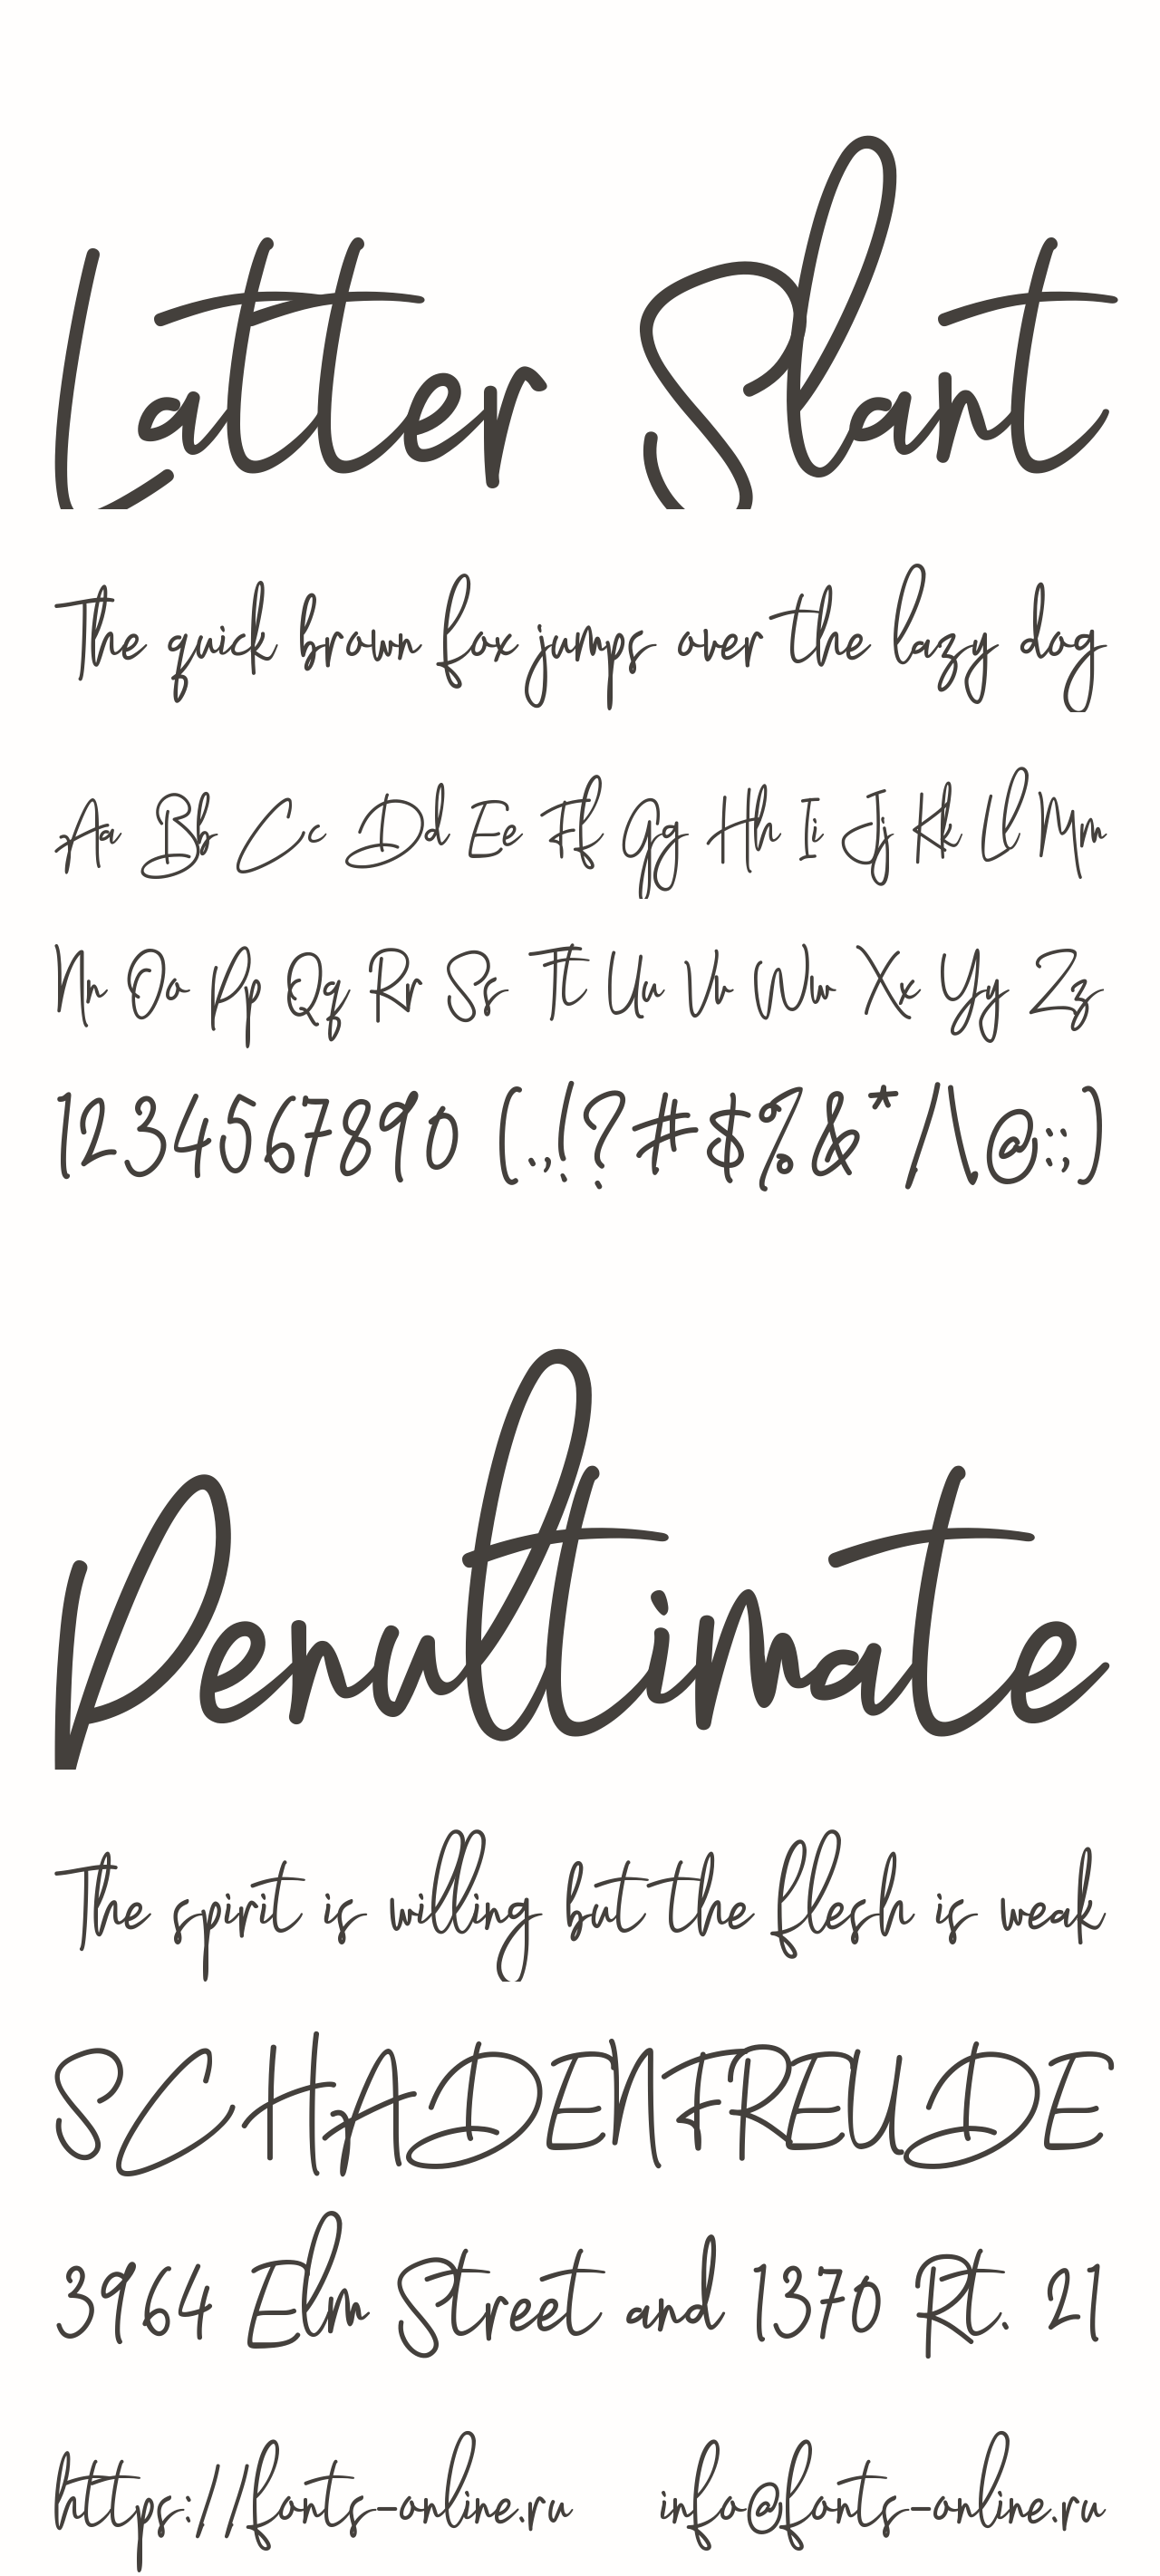 Latter Slant
The quick brown fox jumps over the lazy dog
Aa Bb Cc Dd Ee Ff Gg Hh Ii Jj Kk Ll Mm
Nn Oo Pp Qq Rr Ss Tt Uu Vv Ww Xx Yy Zz
1234567890 (.,!?#$%&*/\@:;)
Penultimate
The spirit is willing but the flesh is weak
SCHADENFREUDE
3964 Elm Street and 1370 Rt. 21
https://fonts-online.ru info@fonts-online.ru